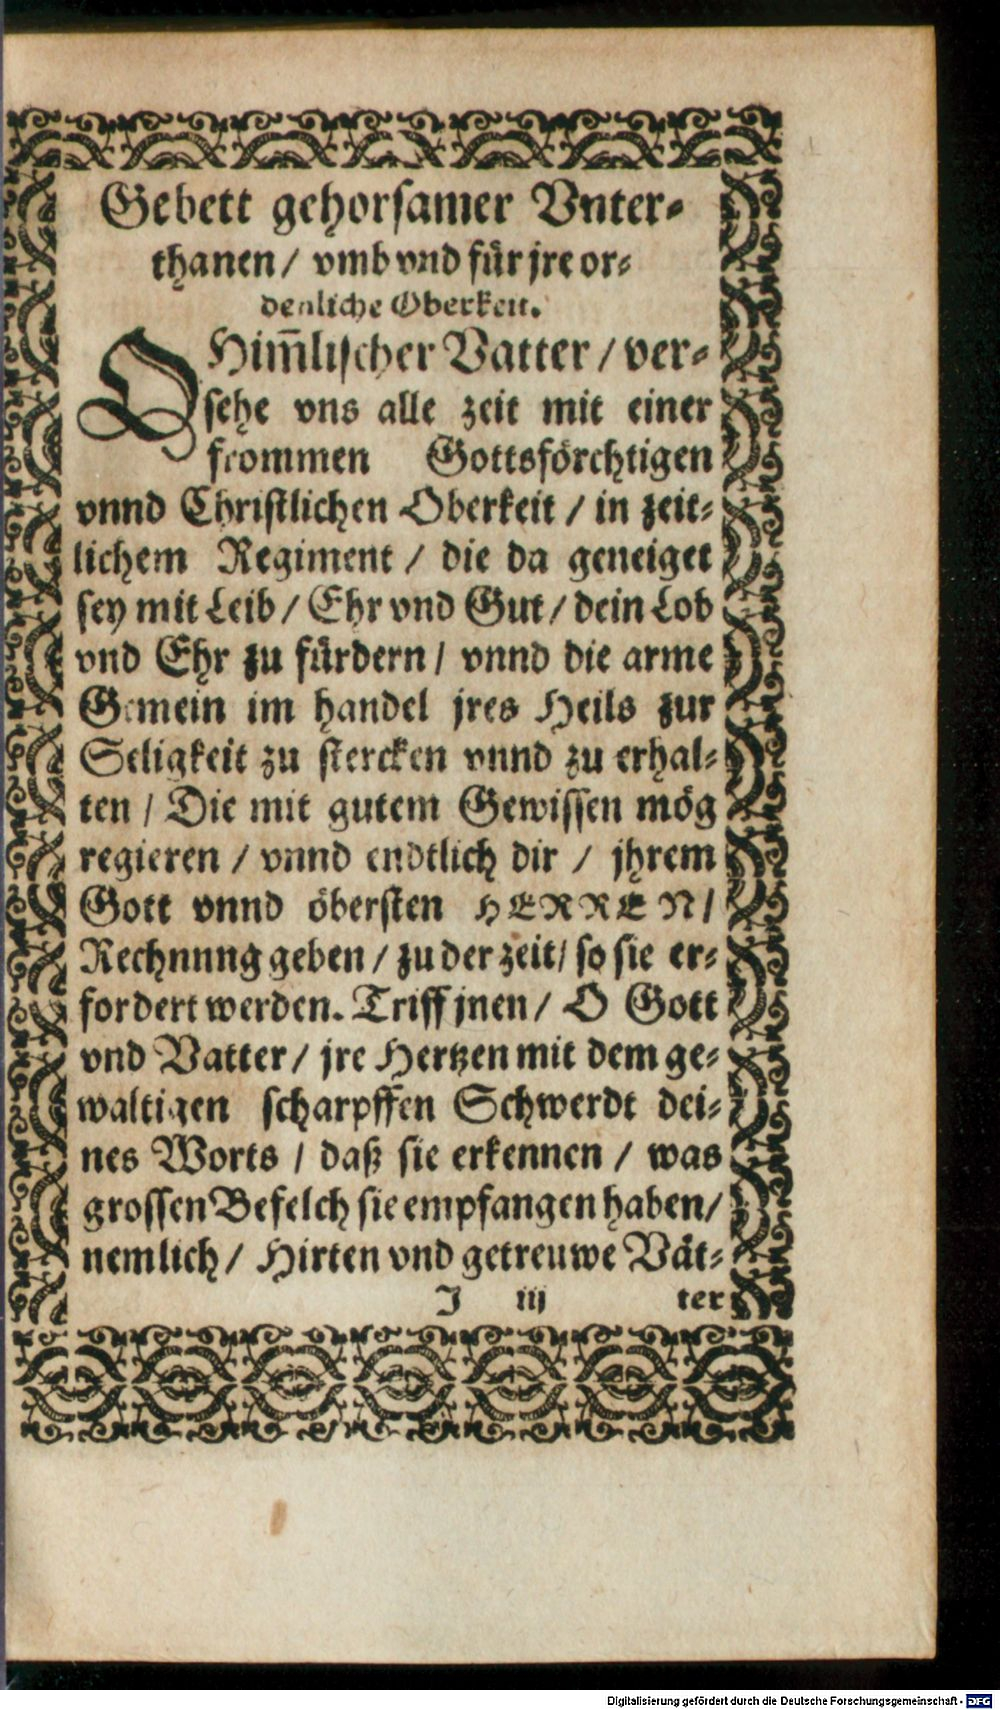 Gebett gehorsamer Vnter-
thanen / vmb vnd für jre or-
denliche Oberkeit.
O Him̃lischer Vatter / ver-
sehe vns alle zeit mit einer
frommen Gottsförchtigen
vnnd Christlichen Oberkeit / in zeit-
lichem Regiment / die da geneiget
sey mit Leib / Ehr vnd Gut / dein Lob
vnd Ehr zu fürdern / vnnd die arme
Gemein im handel jres Heils zur
Seligkeit zu stercken vnnd zu erhal-
ten / Die mit gutem Gewissen mög
regieren / vnnd endtlich dir / jhrem
Gott vnnd öbersten HERREN /
Rechnung geben / zu der zeit / so sie er-
fordert werden. Triff jnen / O Gott
vnd Vatter / jre Hertzen mit dem ge-
waltigen scharpffen Schwerdt dei-
nes Worts / daß sie erkennen / was
grossen Befelch sie empfangen haben /
nemlich / Hirten vnd getreuwe Vät-
J iij ter
Digitalisierung gefördert durch die Deutsche Forschungsgemeinschaft - DFG